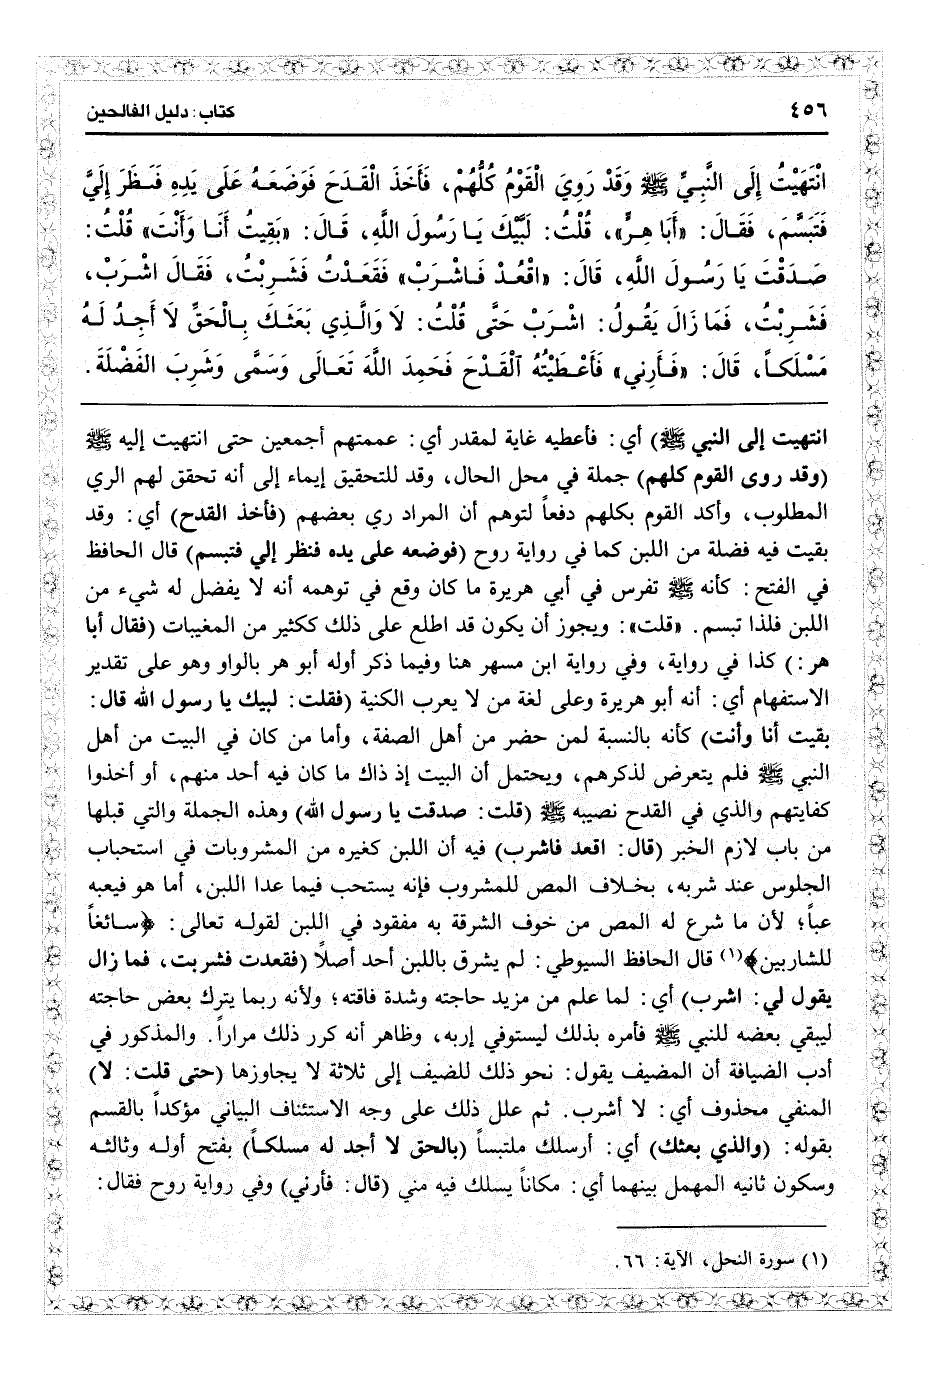 ٤٥٦
كتاب: دليل الفالحين
انْتَهَيْتُ إِلَى النَّبِيِّ ﷺ وَقَدْ رَوِيَ الْقَوْمُ كُلُّهُمْ، فَأَخَذَ الْقَدَحَ فَوَضَعَهُ عَلَى يَدِهِ فَنَظَرَ إِلَيَّ
فَتَبَسَّمَ، فَقَالَ: «أَبَا هِرٍّ»، قُلْتُ: لَبَّيْكَ يَا رَسُولَ اللَّهِ، قَالَ: «بَقِيتُ أَنَا وَأَنْتَ» قُلْتُ:
صَدَقْتَ يَا رَسُولَ اللَّهِ، قَالَ: «اقْعُدْ فَاشْرَبْ» فَقَعَدْتُ فَشَرِبْتُ، فَقَالَ اشْرَبْ،
فَشَرِبْتُ، فَمَا زَالَ يَقُولُ: اشْرَبْ حَتَّى قُلْتُ: لَا وَالَّذِي بَعَثَكَ بِالْحَقِّ لَا أَجِدُ لَهُ
مَسْلَكاً، قَالَ: «فَأَرِنِي» فَأَعْطَيْتُهُ الْقَدَحَ فَحَمِدَ اللَّهَ تَعَالَى وَسَمَّى وَشَرِبَ الفَضْلَةَ.
انتهيت إلى النبي ﷺ) أي: فأعطيه غاية لمقدر أي: عممتهم أجمعين حتى انتهيت إليه ﷺ
(وقد روى القوم كلهم) جملة في محل الحال، وقد للتحقيق إيماء إلى أنه تحقق لهم الري
المطلوب، وأكد القوم بكلهم دفعاً لتوهم أن المراد ري بعضهم (فأخذ القدح) أي: وقد
بقيت فيه فضلة من اللبن كما في رواية روح (فوضعه على يده فنظر إلي فتبسم) قال الحافظ
في الفتح: كأنه ﷺ تفرس في أبي هريرة ما كان وقع في توهمه أنه لا يفضل له شيء من
اللبن فلذا تبسم. «قلت»: ويجوز أن يكون قد اطلع على ذلك ككثير من المغيبات (فقال أبا
هر:) كذا في رواية، وفي رواية ابن مسهر هنا وفيما ذكر أوله أبو هر بالواو وهو على تقدير
الاستفهام أي: أنه أبو هريرة وعلى لغة من لا يعرب الكنية (فقلت: لبيك يا رسول الله قال:
بقيت أنا وأنت) كأنه بالنسبة لمن حضر من أهل الصفة، وأما من كان في البيت من أهل
النبي ﷺ فلم يتعرض لذكرهم، ويحتمل أن البيت إذ ذاك ما كان فيه أحد منهم، أو أخذوا
كفايتهم والذي في القدح نصيبه ﷺ (قلت: صدقت يا رسول الله) وهذه الجملة والتي قبلها
من باب لازم الخبر (قال: اقعد فاشرب) فيه أن اللبن كغيره من المشروبات في استحباب
الجلوس عند شربه، بخلاف المص للمشروب فإنه يستحب فيما عدا اللبن، أما هو فيعبه
عباً؛ لأن ما شرع له المص من خوف الشرقة به مفقود في اللبن لقوله تعالى: ﴿سائغاً
للشاربين﴾(١) قال الحافظ السيوطي: لم يشرق باللبن أحد أصلاً (فقعدت فشربت، فما زال
يقول لي: اشرب) أي: لما علم من مزيد حاجته وشدة فاقته؛ ولأنه ربما يترك بعض حاجته
ليبقي بعضه للنبي ﷺ فأمره بذلك ليستوفي إربه، وظاهر أنه كرر ذلك مراراً. والمذكور في
أدب الضيافة أن المضيف يقول: نحو ذلك للضيف إلى ثلاثة لا يجاوزها (حتى قلت: لا)
المنفي محذوف أي: لا أشرب. ثم علل ذلك على وجه الاستئناف البياني مؤكداً بالقسم
بقوله: (والذي بعثك) أي: أرسلك ملتبساً (بالحق لا أجد له مسلكاً) بفتح أوله وثالثه
وسكون ثانيه المهمل بينهما أي: مكاناً يسلك فيه مني (قال: فأرني) وفي رواية روح فقال:
(١) سورة النحل، الآية: ٦٦.